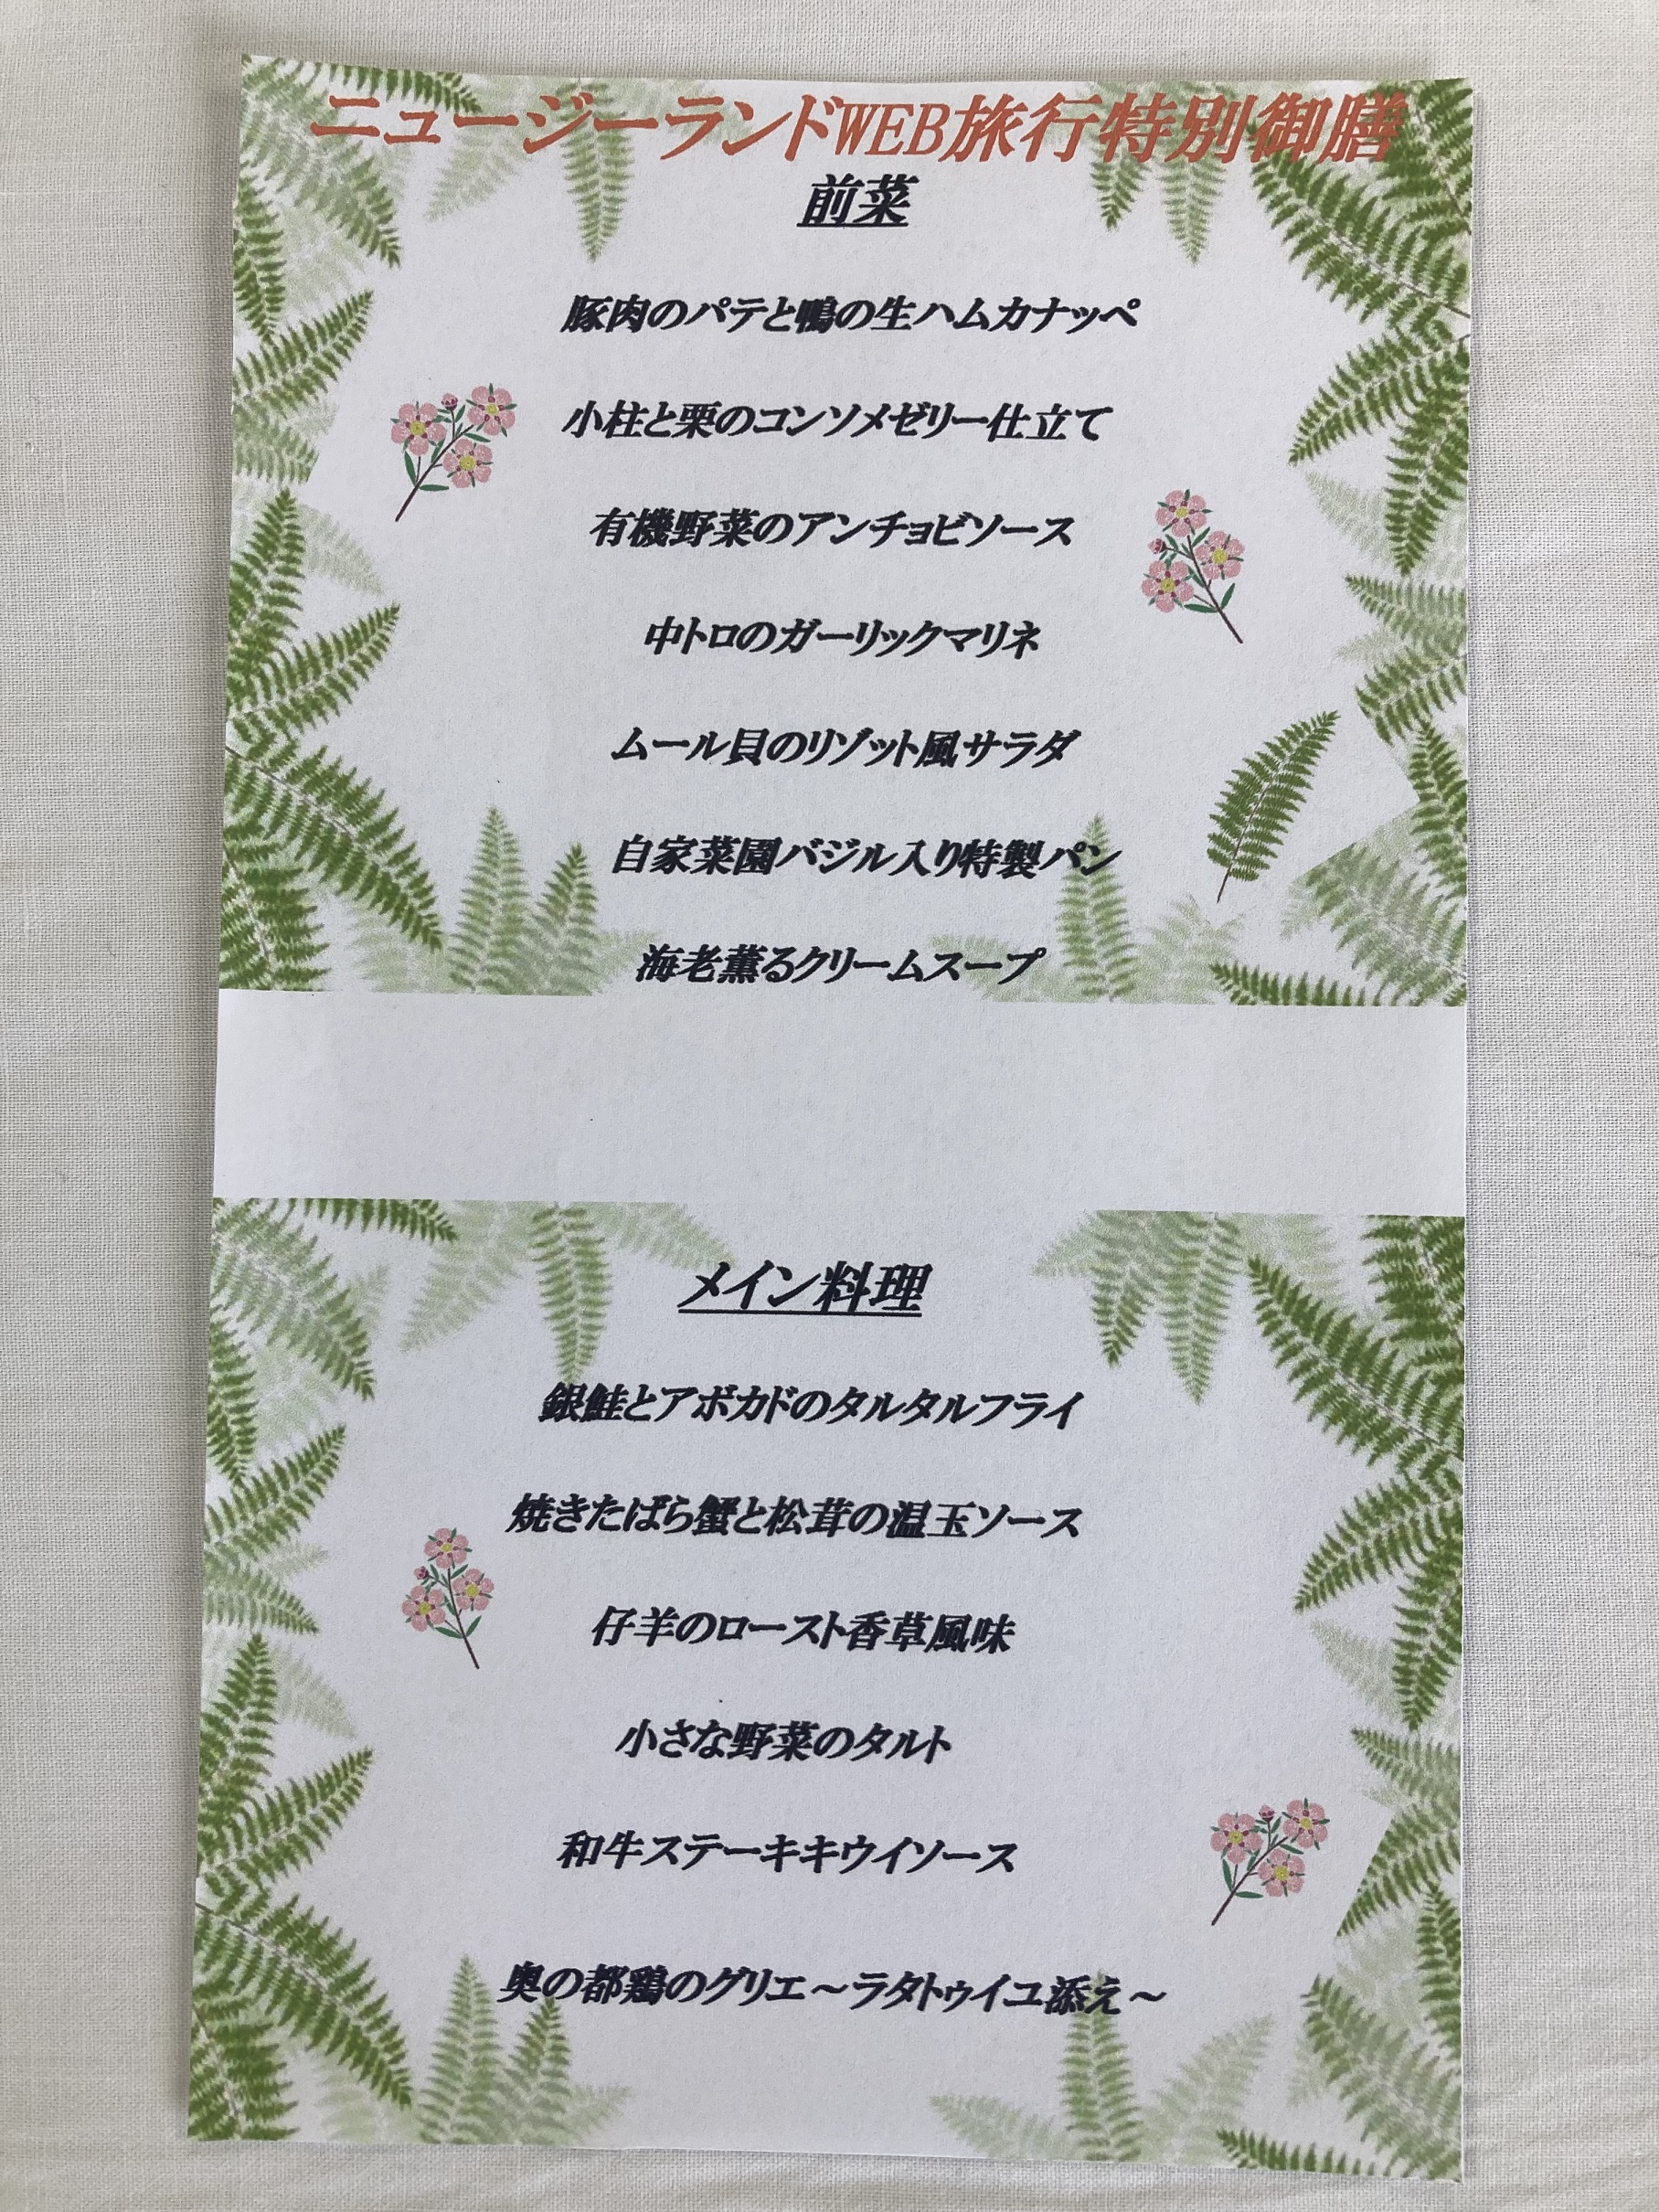 ニュージーランドWEB旅行特別御膳
前菜
豚肉のパテと鴨の生ハムカナッペ
小柱と栗のコンソメゼリー仕立て
有機野菜のアンチョビソース
中トロのガーリックマリネ
ムール貝のリゾット風サラダ
自家菜園バジル入り特製パン
海老薫るクリームスープ
メイン料理
銀鮭とアボカドのタルタルフライ
焼きたばら蟹と松茸の温玉ソース
仔羊のロースト香草風味
小さな野菜のタルト
和牛ステーキキウイソース
奥の都鶏のグリエ～ラタトゥイユ添え～